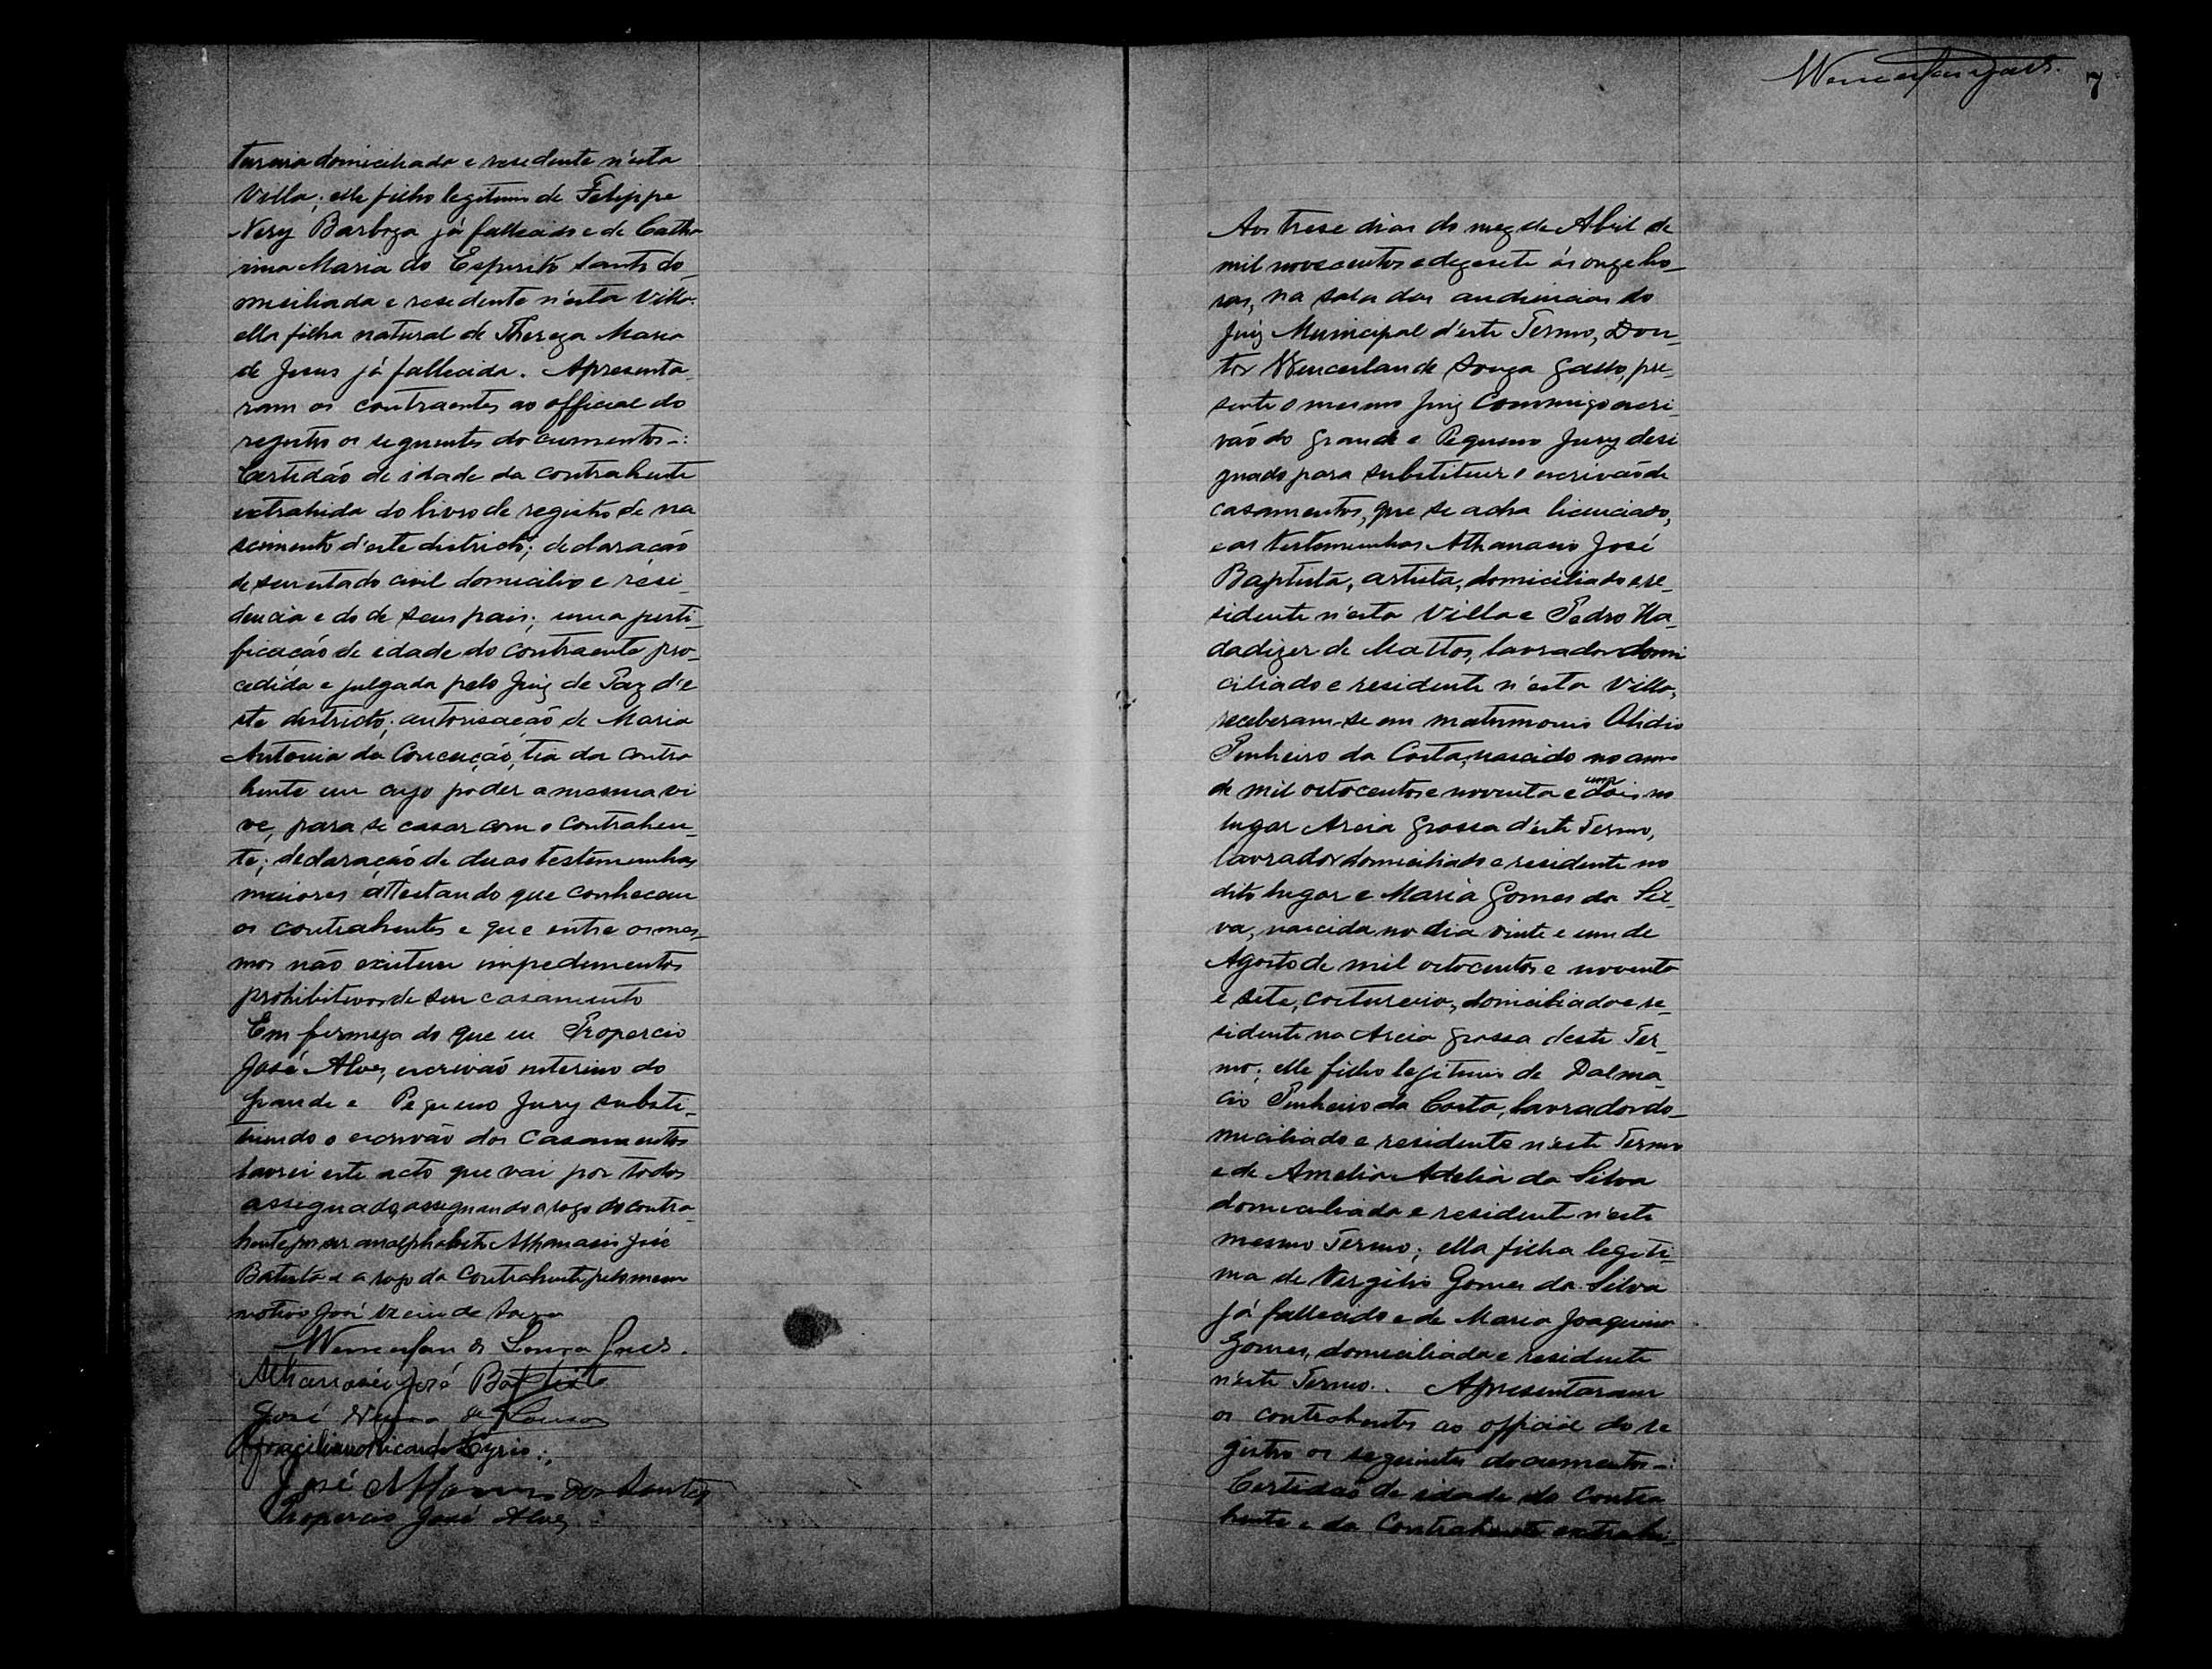 tureira domiciliada e residente n'esta
Villa; elle filho legitimo de Felippe
Nery Barboza já fallecido e de Catha
rina Maria do Espirito Santo do
miciliada e residente n'esta Villa.
ella filha natural de Thereza Maria
de Jesus já fallecida. Apresenta
ram os contraentes ao official do
registro os seguentes documentos-:
Certidão de idade da contrahente
extrahida do livro de registro de na
scimento d'este districto; declaração
de seu estado civil domicilio e resi
dencia e do de seus pais; uma justi_
ficação de idade do contraente pro_
cedida e julgada pelo Juiz de Paz d'e
ste districto; autorisação de Maria
Antonia da Conceição, tia da contra
hente em cujo poder a mesma vi
ve, para se casar com o contrahen_
te; declaração de duas testemunhas
maiores attestando que conhecem
os contrahentes e que entre os mes_
mos não existem impedimentos
prohibitivos de seu casamento
Em firmeza do que eu Propercio
José Alves, escrivão interino do
grande e Pequeno Jury substi_
tuindo o escrivão dos casamentos
lavrei este acto que vai por todos
assignado, assignando a rogo do contra_
hente por ser analphabeto Athanasio José
Batista e a rogo da contrahente pelo mesmo
motivo José de Souza
Wenceslau de Souza
Athanasio José Baptista
José de Souza
Ricardo Cyrio.
José dos Santos
Propercio José Alves
7
Aos trese dias do mez de Abril de
mil novecentos e dezesete ás onze ho_
ras, na sala das audiencias do
Juiz Municipal d'este Termo, Dou_
tor Wenceslau de Souza Gallo, pre_
sente o mesmo Juiz Commigo escri_
vão do grande e Pequeno Jury desi
gnado para substituir o escrivão de
casamentos, que se acha licenciado,
e as testemunhas Athanasio José
Baptista, artista, domiciliado e re_
sidente n'esta Villa e Pedro Na_
dadizer de Mattos, lavrador domi
ciliado e residente n'esta Villa,
receberam-se em matrimonio Olidio
Pinheiro da Costa, nascido no anno
de mil oitocentos e noventa e dois um no
lugar Areia Grossa d'este Termo,
lavrador domiciliado e residente no
dito lugar e Maria Gomes da Sil_
va, nascida no dia vinte e um de
Agosto de mil oitocentos e noventa
e sete, costureira, domiciliada e re_
sidente na Areia Grossa deste Ter_
mo; elle filho legitimo de Dalma_
cio Pinheiro da Costa, lavrador do_
miciliado e residente n'este Termo
e de Amelia Adelia da Silva
domiciliada e residente n'este
mesmo Termo; ella filha legiti_
ma de Vergilio Gomes da Silva
já fallecido e de Maria Joaquina
Gomes, domiciliada e residente
n'este Termo. Apresentaram
os contrahentes ao official do re
gistro os seguintes documentos-:
Certidão de idade do contra
hente e da Contrahente extrahi_